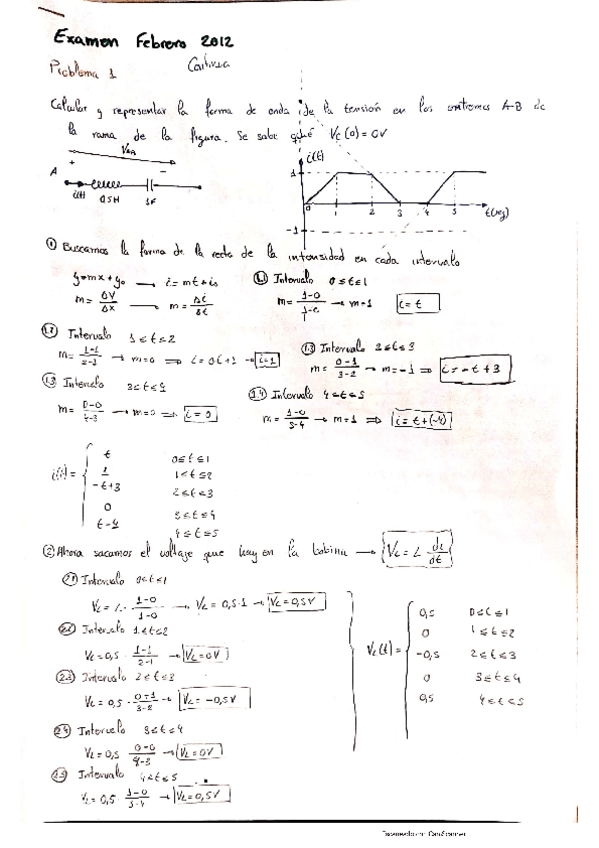 Examen Febrero 2012
Problema 1
Calcular y representar la forma de onda de la tensión en los extremos A-B de
la rama de la figura. Se sabe que Vc(0)=0V
+ -
A
i(t) 0.5H 1F
i(t)
1
-1
0 1 2 3 4 5 t(seg)
① Buscamos la forma de la recta de la intensidad en cada intervalo
y=mx+y₀ → i=mt+i₀
m= ΔY/ΔX → m= Δi/Δt
1.1 Intervalo 0≤t≤1
m= → m=1 i=t
1.2 Intervalo 1≤t≤2
m= 1-1/2-1 → m=0 ⇒ i=0t+1 → i=1
1.3 Intervalo 2≤t≤3
m= 0-1/3-2 → m=-1 ⇒ i=-t+3
1.3 Intervalo 3≤t≤4
m= 0-0/4-3 → m=0 ⇒ i=0
1.4 Intervalo 4≤t≤5
m= 1-0/5-4 → m=1 ⇒ i=t+(-4)
i(t)=
t 0≤t≤1
1 1≤t≤2
-t+3 2≤t≤3
0 3≤t≤4
t-4 4≤t≤5
② Ahora sacamos el voltaje que hay en la bobina → VL=L di/dt
2.1 Intervalo 0≤t≤1
VL=L· 1-0/1-0 → VL=0,5·1 → VL=0,5V
2.2 Intervalo 1≤t≤2
VL=0,5· 1-1/2-1 → VL=0V
2.3 Intervalo 2≤t≤3
VL=0,5· 0-1/3-2 → VL=-0,5V
2.4 Intervalo 3≤t≤4
VL=0,5 0-0/4-3 → VL=0V
2.5 Intervalo 4≤t≤5
VL=0,5· 1-0/5-4 → VL=0,5V
VL(t)=
0,5 0≤t≤1
0 1≤t≤2
-0,5 2≤t≤3
0 3≤t≤4
0,5 4≤t≤5
Escaneado con CamScanner